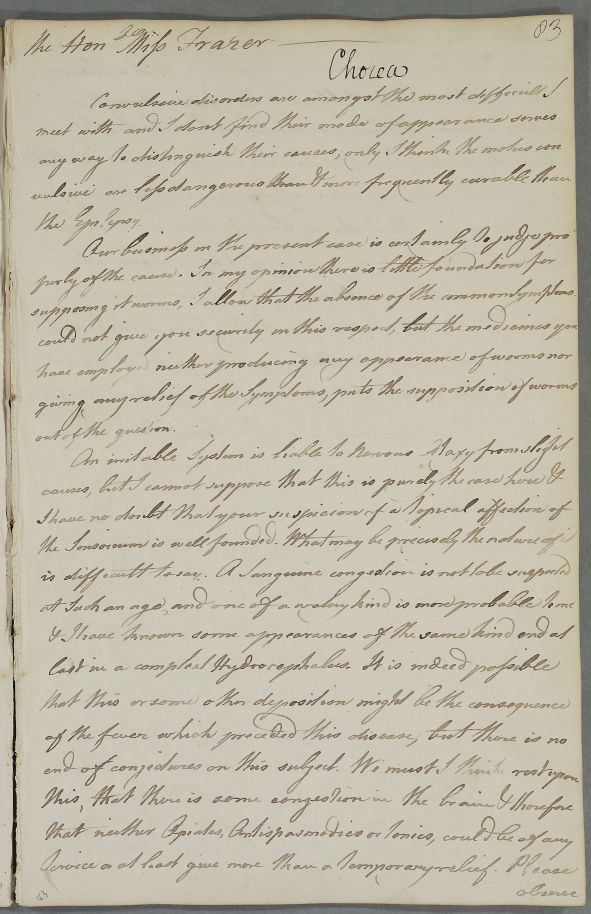 83
the Hon.ble Miss Frazer
Chorea
Convulsive disorders are amongst the most difficult I
meet with and I dont find their mode of appearance serves
any way to distinguish their causes, only I think the motus con
vulsivi are less dangerous than & more frequently curable than
the Epilepsy.
Our business in the present case is certainly to judge pro
perly of the cause. In my opinion there is little foundation for
supposing it worms, I allow that the absence of the common Symptoms
could not give you security in this respect, but the medicines you
have employed neither producing any appearance of worms nor
giving any relief of the Symptoms, puts the supposition of worms
out of the question.
An irritable System is liable to Nervous Ataxy from slight
causes, but I cannot suppose that this is purely the case here &
I have no doubt that your suspicion of a Topical affection of
the Sensorium is well founded. What may be precisely the nature of it
is difficult to say. A Sanguine congestion is not to be suspected
at Such an age, and one of a watery kind is more probable to me
& I have known some appearances of the same kind end at
last in a compleat Hydrocephalus. It is indeed possible
that this or some other deposition might be the consequence
of the fever which preceded this disease, but there is no
end of conjectures on this subject. We must I think rest upon
this, that there is some congestion in the brain & therefore
that neither Opiates, Antispasmodics or Tonics, could be of any
Service or at least give more than a temporary relief. Please
observe
83